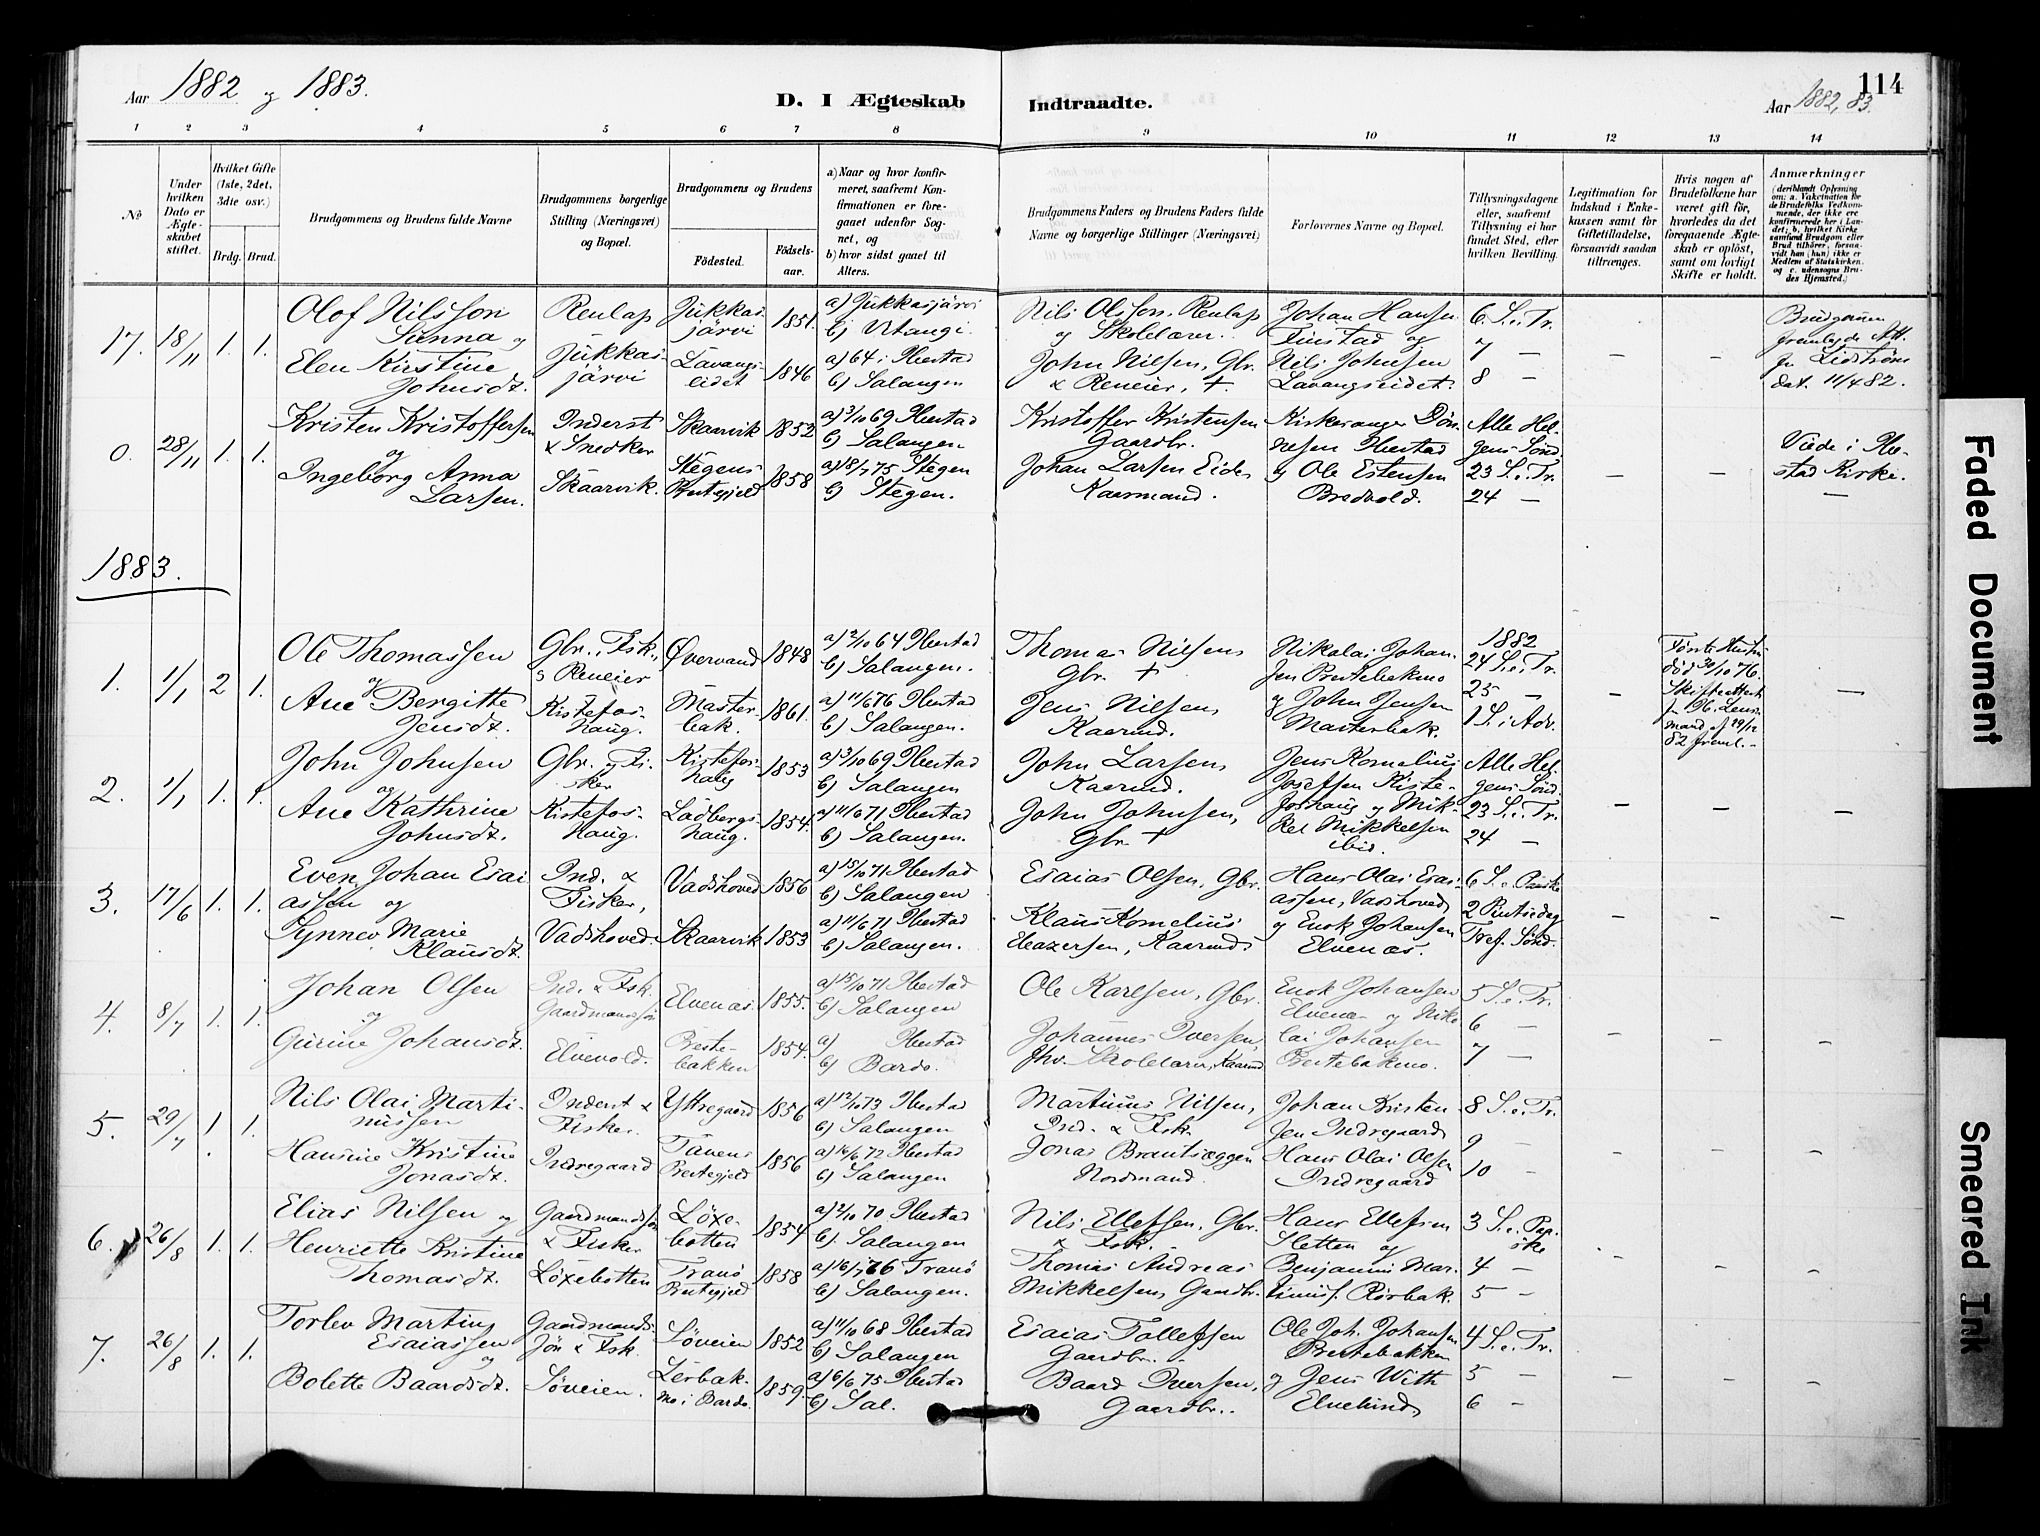 114
Aar 1882 og 1883.
D. I Ægteskab Indtraadte.
Aar 1882, 83.
1 2 3 4 5 6 7 8 9 10 11 12 13 14
No
Under hvilken Dato er Ægteskabet stiftet.
Hvilket Gifte (1ste, 2det, 3die osv.)
Brdg. Brud.
Brudgommens og Brudens fulde Navne
Brudgommens borgerlige Stilling (Næringsvei) og Bopæl.
Brudgommens og Brudens
Fødested. Fødselsaar.
a) Naar og hvor konfirmeret, saafremt Konfirmationen er foregaaet udenfor Sognet, og
b) hvor sidst gaaet til Alters.
Brudgommens Faders og Brudens Faders fulde Navne og borgerlige Stillinger (Næringsvei)
Forlovernes Navne og Bopæl.
Tillysningsdagene eller, saafremt Tillysning ei har fundet Sted, efter hvilken Bevilling.
Legitimation for Indskud i Enkekassen samt for Giftetilladelse, forsaavidt saadan tiltrænges.
Hvis nogen af Brudefolkene har været gift før, hvorledes da det foregaaende Ægteskab er opløst, samt om lovligt Skifte er holdt.
Anmærkninger
(deriblandt Oplysning om: a. Vakcination for de Brudefolks Vedkommende, der ikke ere konfirmerede her i Landet; b. hvilket Kirkesamfund Brudgom eller Brud tilhører, forsaavidt han (hun) ikke er Medlem af Statskirken, og c. udensogns Brudes Hjemsted.)
17. 18/11 1. 1.
Olof Nilsson Sunna og
Elen Kirstine Johnsdt.
Renlap Jukkasjärvi
Jukkasjärvi 1851.
Lavangseidet 1846
a) Jukkasjärvi
b) Vitangi
a) 64 i Ibestad
b) Salangen
Nils Olsson, Renlap og Skolelærer.
John Nilsen, Gbr. & Reneier, +
Johan Hansen Fiustad og
Nils Johnsen Lavangseidet
6 S. e. Tr.
7 —
8 —
— —
Brudgommen
dat. 11/4 82.
0. 28/11 1. 1.
Kristen Kristoffersen og
Ingeborg Anna Larsen.
Inderst & Snedker Skaarvik.
Skaarvik 1852
Stegens Prestegjeld 1858
a) 3/10 69 Ibestad
b) Salangen
a) 18/7 75 Stegen
b) Stegen.
Kristoffer Kristensen Gaardbr.
Johan Larsen Eide, Kaarmand.
Kirkesanger Dønnesen Ibestad
og Ole Estensen Bredvold.
Alle Helgens Sønd.
23 S. e. Tr.
24 —
— —
Viede i Ibestad Kirke.
—
1883.
1. 1/1 2 1.
Ole Thomassen og
Ane Bergitte Jensdt.
Gbr., Fsk., & Reneier Kistefoshaug.
Øvervand 1848
Masterbak. 1861.
a) 2/10 64 Ibestad
b) Salangen.
a) 11/6 76 Ibestad
b) Salangen.
Thomas Nilsen, Gbr. +
Jens Nilsen, Kaarmd.
Nikolai Johansen Prestebakmo
og John Jensen Masterbak.
1882
24 S. e. Tr.
25 —
1 S. i Adv.
—
Første Hustru død 30/10 76.
Skifteattest fr. Lensmand af 29/12 82 freml. —
—
2. 1/1 1. 1.
John Johnsen og
Ane Kathrine Johnsdt.
Gbr. og Fisker Kistefoshaug.
Kistefoshaug 1853
Ladbergshaug. 1854.
a) 3/10 69 Ibestad
b) Salangen
a) 11/6 71 Ibestad
b) Salangen.
John Larsen, Kaarmd.
John Johnsen, Gbr. +
Jens Kornelius Joseffsen Kistefoshaug og Mikkel Mikkelsen ibid.
Alle Helgens Sønd.
23 S. e. Tr.
24 —
— — —
3. 17/6 1. 1.
Even Johan Esaiassen og
Synnev Marie Klausdt.
Ind. & Fisker, Vadshoved
Vadshoved 1856
Skaarvik 1853
a) 15/10 71 Ibestad
b) Salangen
a) 11/6 71 Ibestad
b) Salangen.
Esaias Olsen, Gbr.
Klaus Kornelius Eleazersen, Kaarmd.
Hans Olai Esaiassen, Vadshoved,
og Enok Johansen Elvenæs.
6 S. e. Paaske
2 Pintsedag
Tref. Sønd.
— — —
4. 8/7 1. 1.
Johan Olsen og
Gurine Johansdt.
Ind. & Fsk. Gaardmandssøn Elvevold.
Elvenæs 1855.
Prestebakken 1854.
a) 15/10 71 Ibestad
b) Salangen
a) Ibestad
b) Bardo.
Ole Karlsen, Gbr.
Johannes Iversen, fhv. Skolelærer, Kaarmd
Enok Johansen Elvenæs og Nikolai Johansen Prestebakmo.
5 S. e. Tr.
6 —
7 —
— — —
5. 29/7 1. 1.
Nils Olai Martinussen &
Hansine Kristine Jonasdt.
Inderst & Fisker. Indregaard
Yttregaard 1856
Tanens Prestegjeld 1856
a) 12/10 73 Ibestad
b) Salangen
a) 16/6 72 Ibestad
b) Salangen
Martinus Nilsen, Ind. & Fsk.
Jonas Brantsæggen Nordmand.
Johan Kristensen Indregaard,
Hans Olai Olsen Indregaard
8 S. e. Tr.
9 —
10 —
— — —
6. 26/8 1. 1.
Elias Nilsen og
Henriette Kristine Thomasdt.
Gaardmandssøn & Fisker Løxebotten
Løxebotten 1854
Tranø Prestegjeld 1858
a) 2/10 70 Ibestad
b) Salangen
a) 16/7 76 Tranö
b) Salangen.
Nils Ellefsen, Gbr. & Fsk.
Thomas Andreas Mikkelsen, Gaardbr.
Hans Ellefsen Sletten og
Benjamin Martinuss. Rørbak.
3 S. e. Paaske
4 —
5 —
— — —
7. 26/8 1. 1.
Torlev Martin Esaiassen og
Bolette Baardsdt.
Gaardmandssøn & Fsk. Søveien.
Søveien 1852
Lerbakmo i Bardo. 1859.
a) 11/10 68 Ibestad
b) Salangen
a) 6/6 75 Ibestad
b) Sal.
Esaias Tollefsen Gaardbr.
Baard Iversen, Gaardbr.
Ole Joh. Johansen Prestebakken
og Jens With Elvelund,
4 S. e. Tr.
5 —
6 —
— — —
Faded Document
Smeared Ink